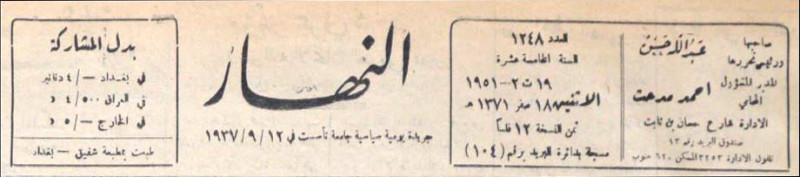 صاحبها
ورئيس تحريرها
عبدالله حسن
المدير المسؤول
المحامي
احمد مدحت
الادارة شارع حسان بن ثابت
صندوق البريد رقم ١٣
تلفون الادارة ٣٢٥٣ المسكن ٦٢٠ جنوب
العدد ١٢٤٨
السنة الخامسة عشرة
١٩ ت٢ - ١٩٥١
الاثنين ١٨ صفر ١٣٧١ هـ
ثمن النسخة ١٢ فلساً
مسجلة بدائرة البريد برقم (١٠٤)
النهار
جريدة يومية سياسية جامعة تأسست في ١٢/٩/١٩٣٧
بدل المشاركة
في بغداد -/٤ دنانير
في العراق ٤/٥٠٠ د
في الخارج -/٥ د
طبعت بمطبعة شفيق - بغداد